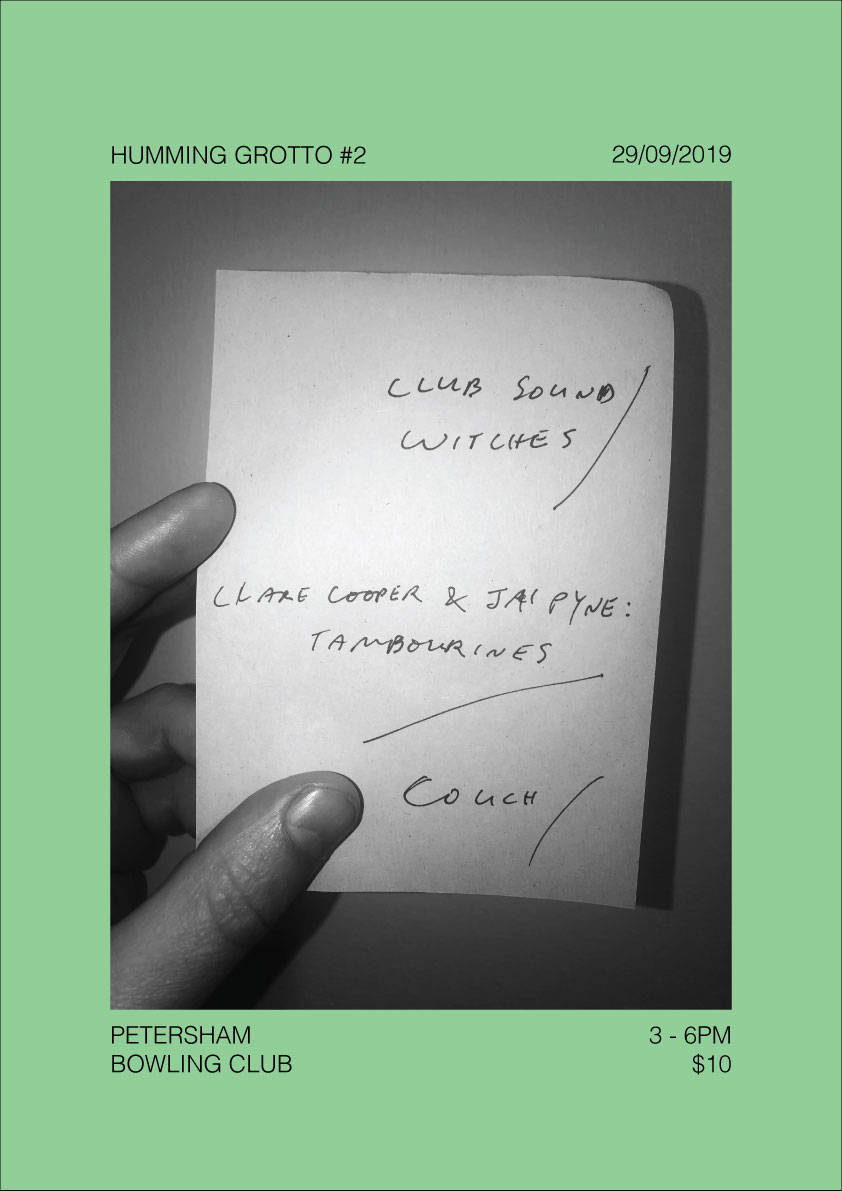 HUMMING GROTTO #2
29/09/2019
CLUB SOUND
WITCHES
CLARE COOPER & JAI PYNE:
TAMBOURINES
COUCH
PETERSHAM
BOWLING CLUB
3 - 6PM
$10